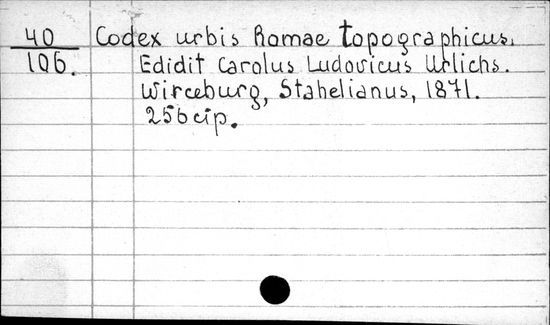 40 Codex urbis Romae topographicus.
106. Edidit Carolus Ludovicus Urlichs.
Wirceburg, Stahelianus, 1871.
256 cтр.